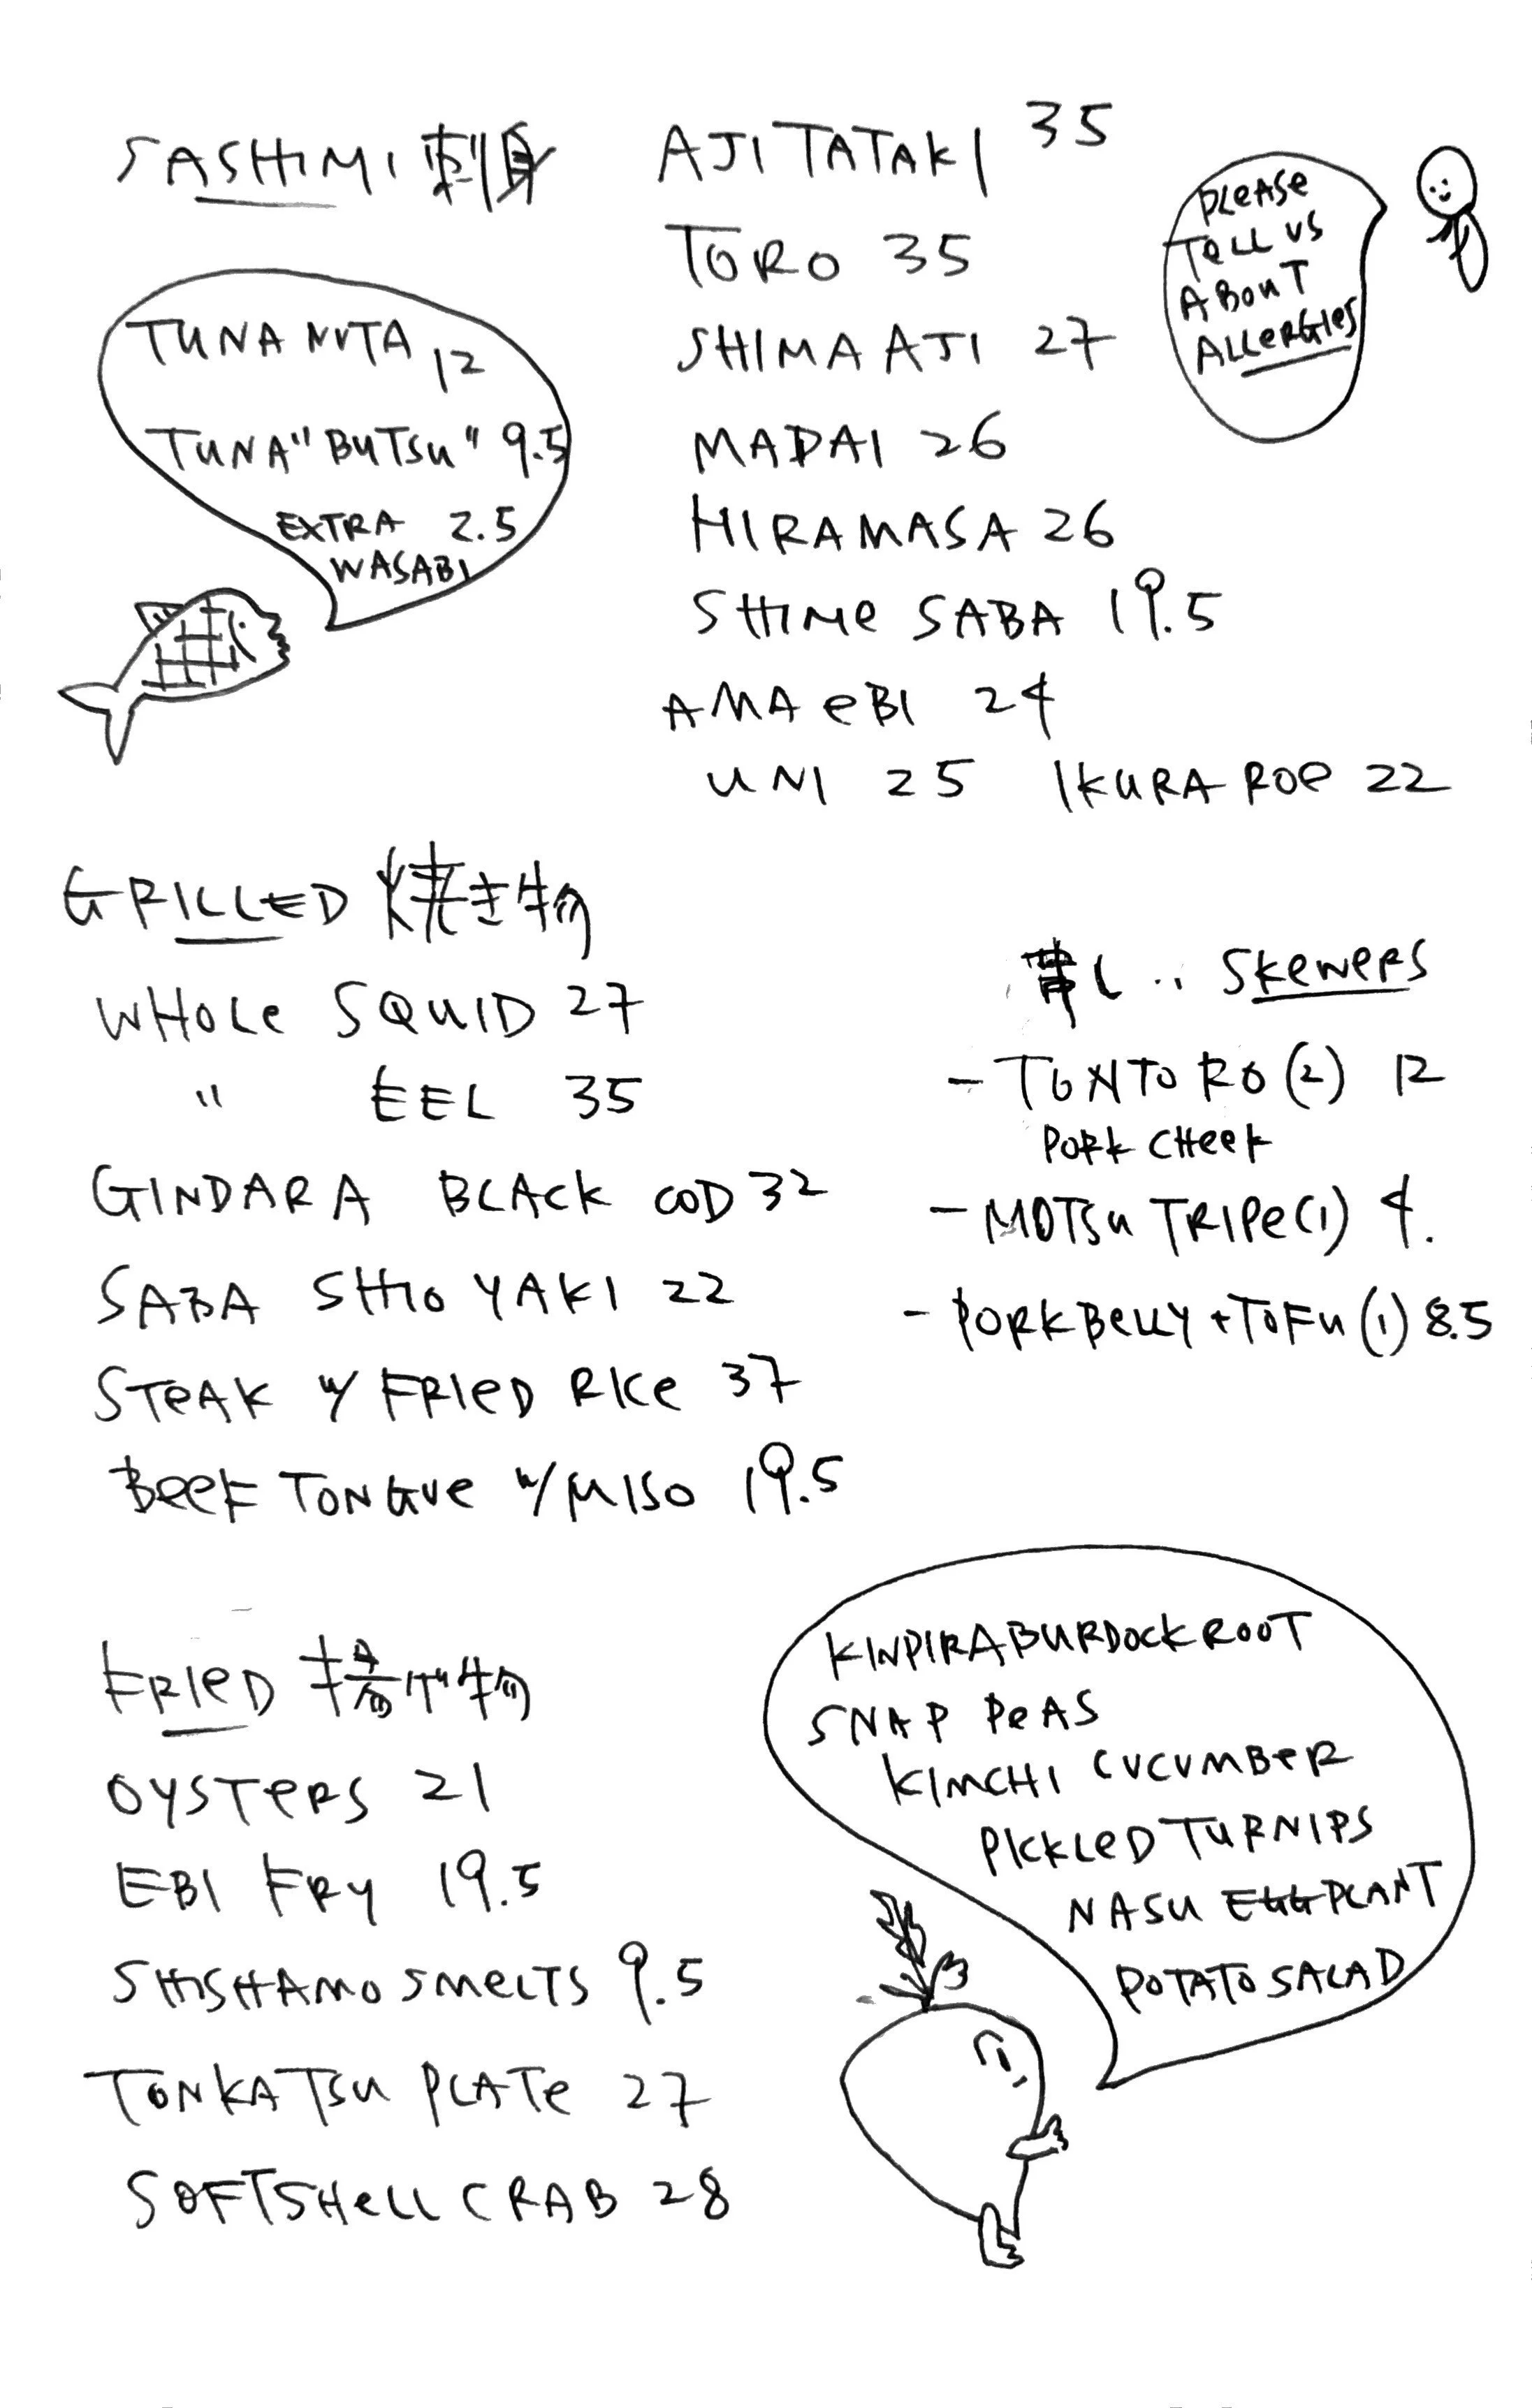 SASHIMI 刺身
TUNA NUTA 12
TUNA "BUTSU" 9.5
EXTRA 2.5
WASABI
AJI TATAKI 35
TORO 35
SHIMA AJI 27
MADAI 26
HIRAMASA 26
SHIME SABA 19.5
AMA EBI 24
UNI 25 IKURA ROE 22
PLEASE
TELL US
ABOUT
ALLERGIES
GRILLED 焼き物
WHOLE SQUID 27
" EEL 35
GINDARA BLACK COD 32
SABA SHIO YAKI 22
STEAK W/ FRIED RICE 37
BEEF TONGUE W/ MISO 19.5
串し .. SKEWERS
- TONTORO (2) 12
PORK CHEEK
- MOTSU TRIPE (1) 4.
- PORK BELLY + TOFU (1) 8.5
FRIED 揚げ物
OYSTERS 21
EBI FRY 19.5
SHISHAMO SMELTS 9.5
TONKATSU PLATE 27
SOFTSHELL CRAB 28
KINPIRA BURDOCK ROOT
SNAP PEAS
KIMCHI CUCUMBER
PICKLED TURNIPS
NASU EGGPLANT
POTATO SALAD